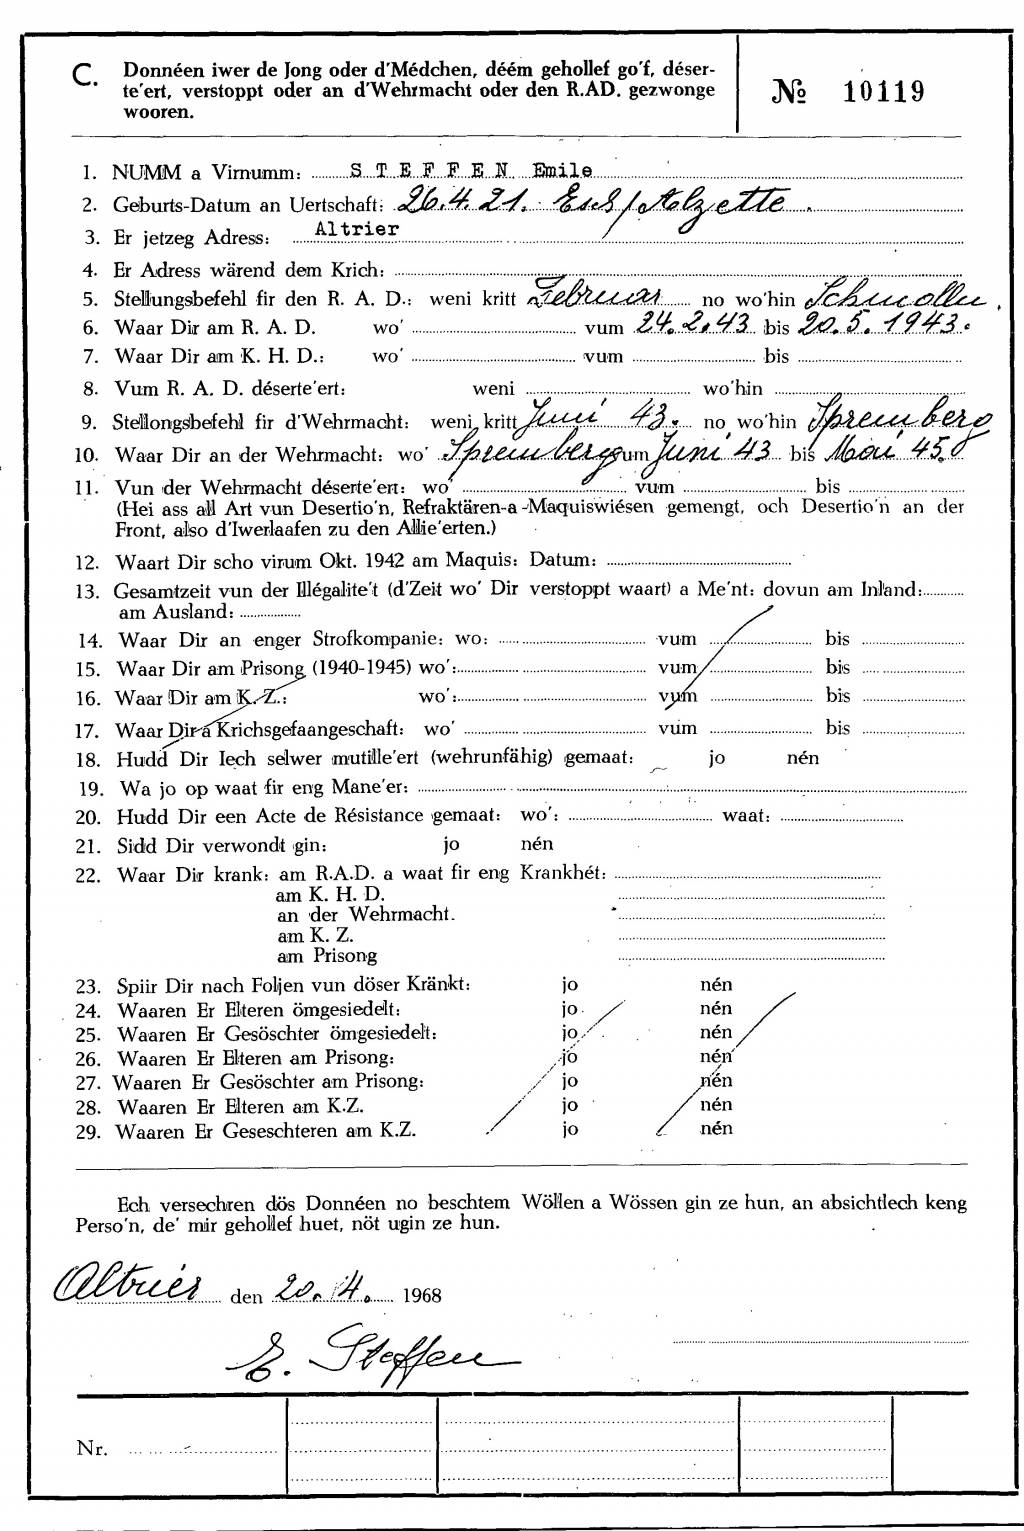 C. Donnéen iwer de Jong oder d'Médchen, déém gehollef go'f, déser-
te'ert, verstoppt oder an d'Wehrmacht oder den R.AD. gezwonge
wooren.
№ 10119
1. NUMM a Virnumm: STEFFEN Emile
2. Geburts-Datum an Uertschaft: 26.4.21. Esch/Alzette.
3. Er jetzeg Adress: Altrier
4. Er Adress wärend dem Krich:
5. Stellungsbefehl fir den R. A. D.: weni kritt Februar no wo'hin Schmolln.
6. Waar Dir am R. A. D. wo' vum 24.2.43 bis 20.5.1943.
7. Waar Dir am K. H. D.: wo' vum bis
8. Vum R. A. D. déserte'ert: weni wo'hin
9. Stellongsbefehl fir d'Wehrmacht: weni kritt Juni 43. no wo'hin Spremberg
10. Waar Dir an der Wehrmacht: wo' Spremberg vum Juni 43 bis Mai 45.
11. Vun der Wehrmacht déserte'ert: wo' vum bis
(Hei ass all Art vun Desertio'n, Refraktären-a-Maquiswiésen gemengt, och Desertio'n an der
Front, also d'Iwerlaafen zu den Allie'erten.)
12. Waart Dir scho virum Okt. 1942 am Maquis: Datum:
13. Gesamtzeit vun der Illégalite't (d'Zeit wo' Dir verstoppt waart) a Me'nt: dovun am Inland:
am Ausland:
14. Waar Dir an enger Strofkompanie: wo: vum bis
15. Waar Dir am Prisong (1940-1945) wo': vum bis
16. Waar Dir am K. Z.: wo': vum bis
17. Waar Dir a Krichsgefaangeschaft: wo' vum bis
18. Hudd Dir Iech selwer mutille'ert (wehrunfähig) gemaat: jo nén
19. Wa jo op waat fir eng Mane'er:
20. Hudd Dir een Acte de Résistance gemaat: wo': waat:
21. Sidd Dir verwondt gin: jo nén
22. Waar Dir krank: am R.A.D. a waat fir eng Krankhét:
am K. H. D.
an der Wehrmacht.
am K. Z.
am Prisong
23. Spiir Dir nach Foljen vun döser Kränkt: jo nén
24. Waaren Er Elteren ömgesiedelt: jo nén
25. Waaren Er Gesöschter ömgesiedelt: jo nén
26. Waaren Er Elteren am Prisong: jo nén
27. Waaren Er Gesöschter am Prisong: jo nén
28. Waaren Er Elteren am K.Z. jo nén
29. Waaren Er Geseschteren am K.Z. jo nén
Ech versechren dös Donnéen no beschtem Wöllen a Wössen gin ze hun, an absichtlech keng
Perso'n, de' mir gehollef huet, nöt ugin ze hun.
Altrier den 20. 4. 1968
E. Steffen
Nr.